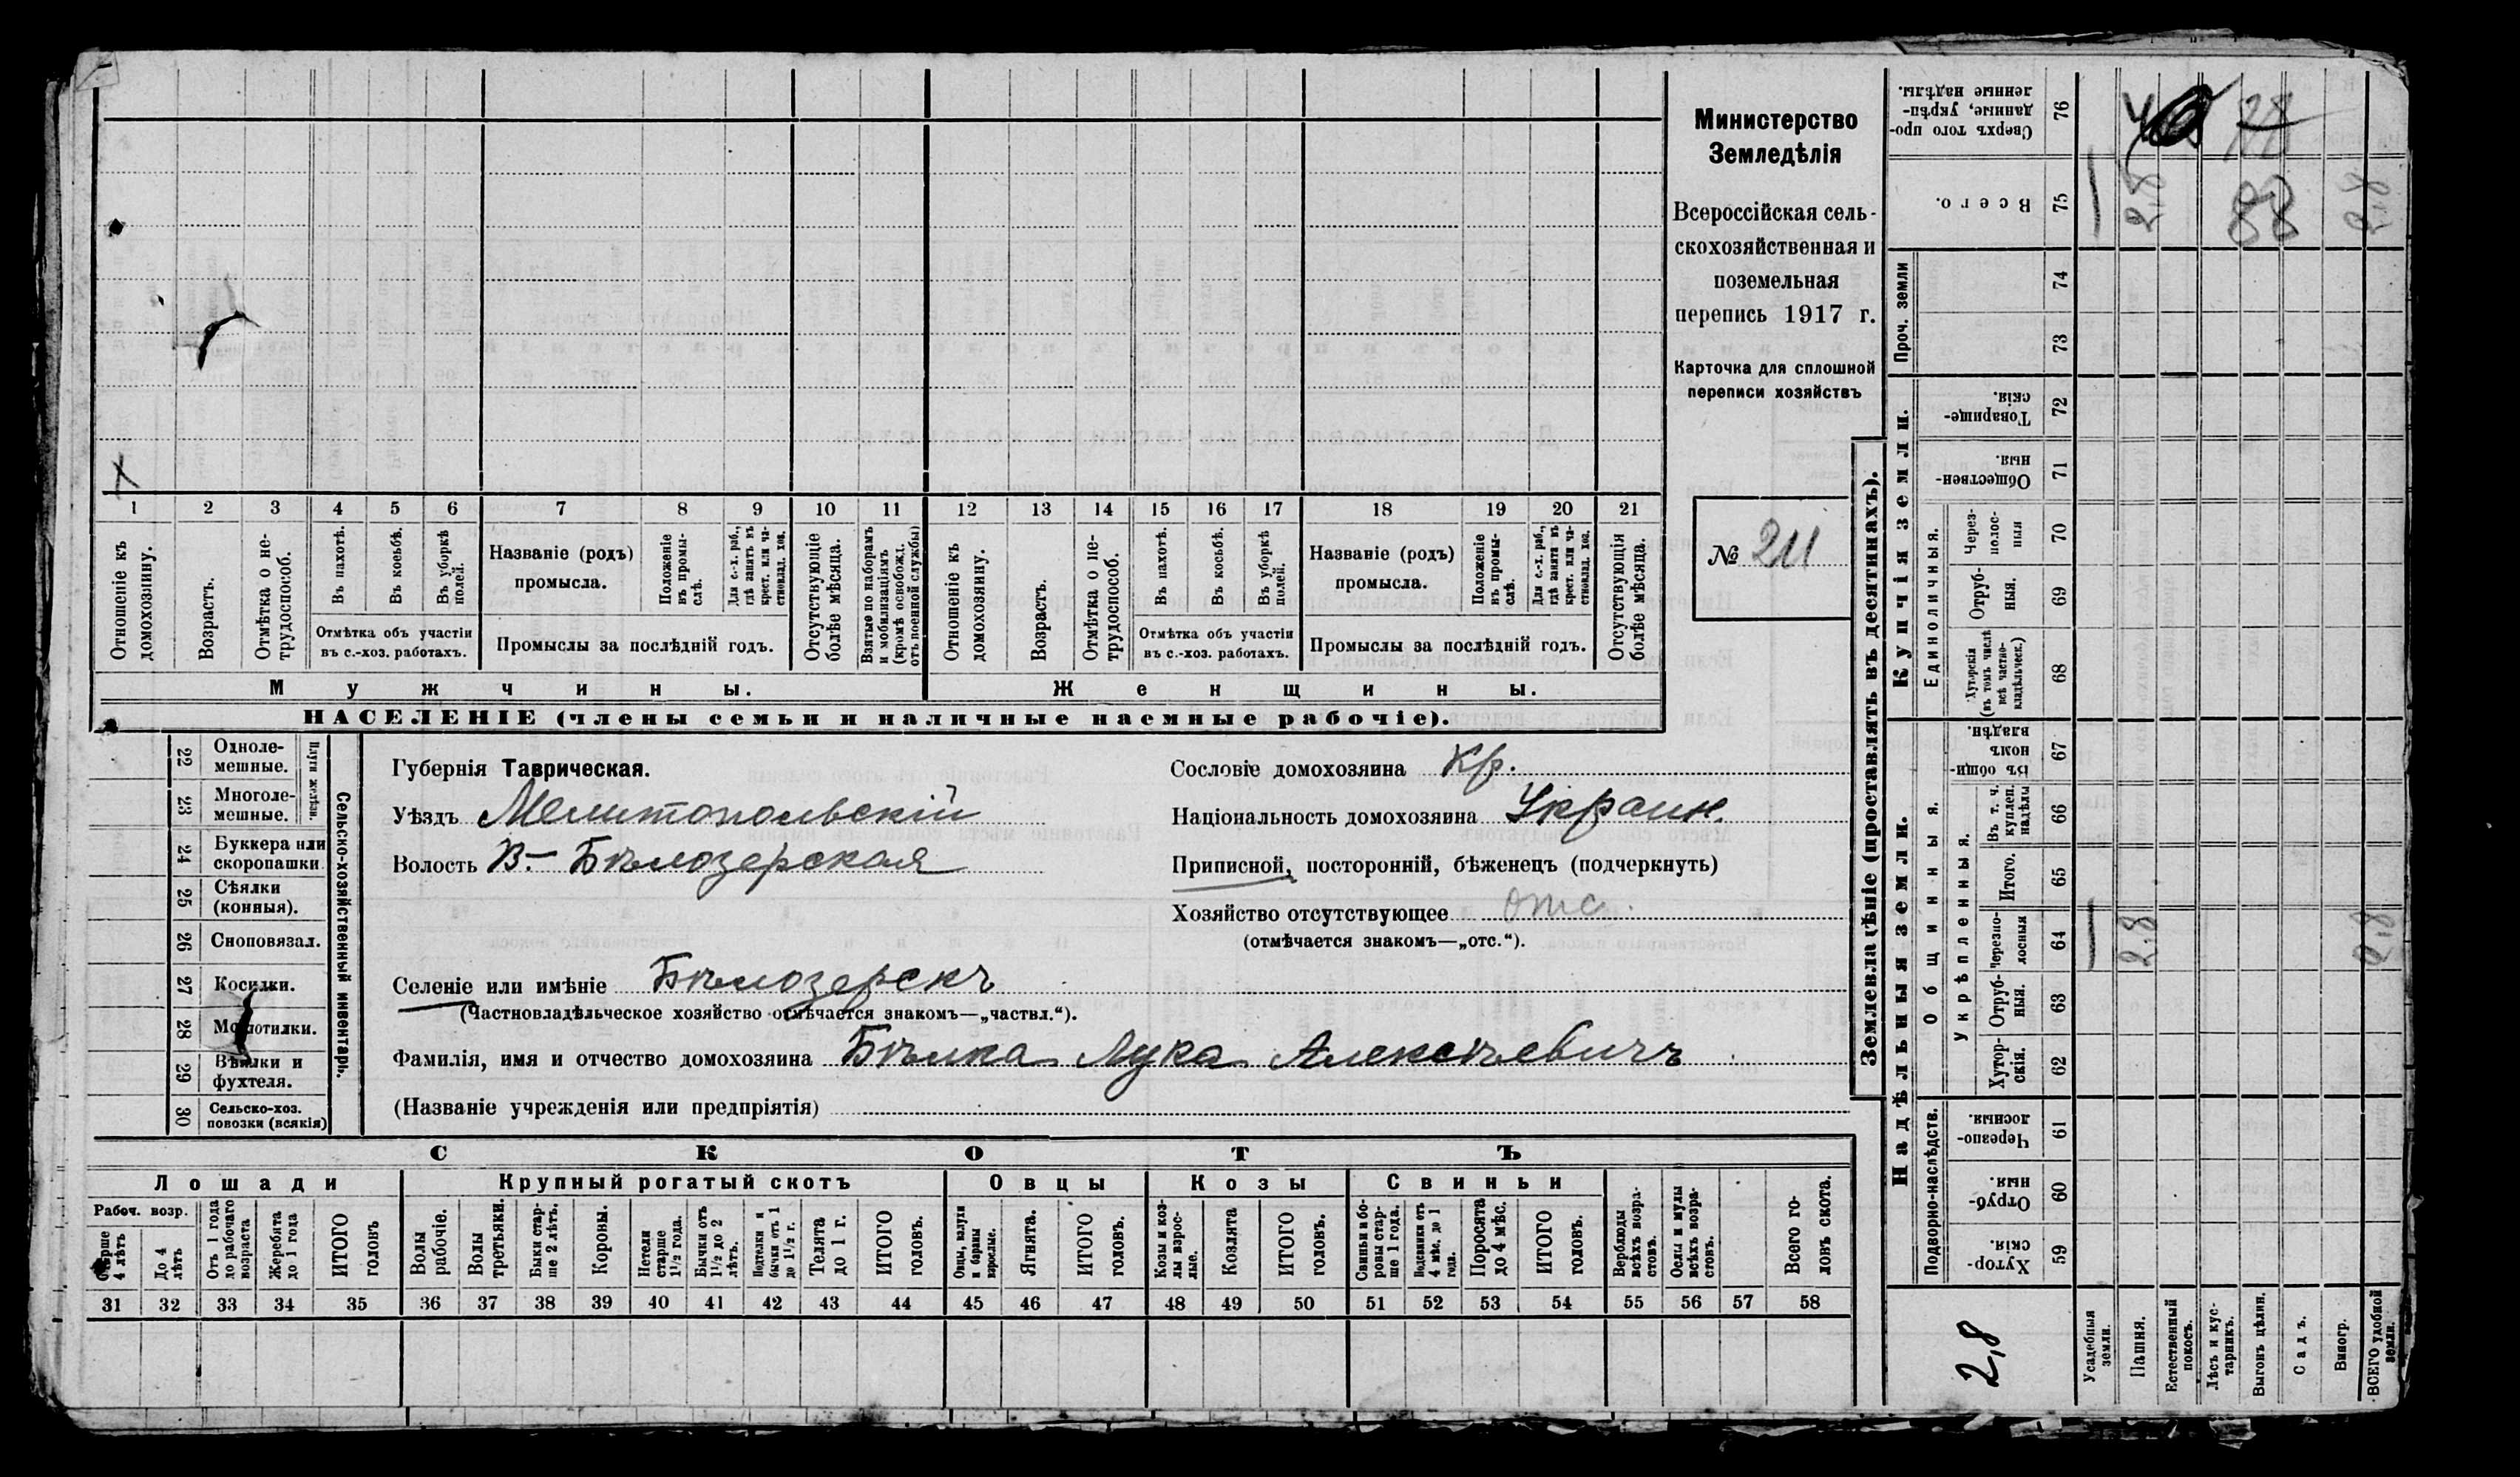 Министерство
Земледѣлія
Всероссійская сель-
скохозяйственная и
поземельная
перепись 1917 г.
Карточка для сплошной
переписи хозяйствъ
№ 211
1 2 3 4 5 6 7 8 9 10 11 12 13 14 15 16 17 18 19 20 21
Отношеніе къ домохозяину.
Возрастъ.
Отмѣтка о не-трудоспособ.
Въ пахотѣ.
Въ косьбѣ.
Въ уборкѣ полей.
Отмѣтка объ участіи въ с.-хоз. работахъ.
Названіе (родъ) промысла.
Положеніе въ промы-слѣ.
Для с.-х. раб., гдѣ занятъ въ крест. или ча-стновлад. хоз.
Промыслы за послѣдній годъ.
Отсутствующіе болѣе мѣсяца.
Взятые по наборамъ и мобилизаціямъ (кромѣ освобожд. отъ военной службы)
Отношеніе къ домохозяину.
Возрастъ.
Отмѣтка о не-трудоспособ.
Въ пахотѣ.
Въ косьбѣ.
Въ уборкѣ полей.
Отмѣтка объ участіи въ с.-хоз. работахъ.
Названіе (родъ) промысла.
Положеніе въ промы-слѣ.
Для с.-х. раб., гдѣ занята въ крест. или ча-стновлад. хоз.
Промыслы за послѣдній годъ.
Отсутствующія болѣе мѣсяца.
Мужчины.
Женщины.
НАСЕЛЕНІЕ (члены семьи и наличные наемные рабочіе).
22 Одноле-мешные.
23 Многоле-мешные.
Плуги желѣзн.
24 Буккера или скоропашки
25 Сѣялки (конныя).
26 Сноповязал.
27 Косилки.
28 Молотилки.
29 Вѣялки и фухтеля.
30 Сельско-хоз. повозки (всякія)
Сельско-хозяйственный инвентарь.
Губернія Таврическая.
Уѣздъ Мелитопольскій
Волость В- Бѣлозерская
Сословіе домохозяина Кр.
Національность домохозяина Украин.
Приписной, посторонній, бѣженецъ (подчеркнуть)
Хозяйство отсутствующее отс.
(отмѣчается знакомъ—„отс.“).
Селеніе или имѣніе Бѣлозерскъ
(Частновладѣльческое хозяйство отмѣчается знакомъ—„частвл.“).
Фамилія, имя и отчество домохозяина Бѣлка Лука Алексѣевичъ
(Названіе учрежденія или предпріятія)
СКОТЪ
Лошади
Крупный рогатый скотъ
Овцы
Козы
Свиньи
Рабоч. возр.
Старше 4 лѣтъ
До 4 лѣтъ
Отъ 1 года до рабочаго возраста
Жеребята до 1 года
ИТОГО головъ
Волы рабочіе.
Волы третьяки.
Быки стар-ше 2 лѣтъ.
Коровы.
Нетели старше 1½ года.
Бычки отъ 1½ до 2 лѣтъ.
Подтелки и бычки отъ 1 до 1½ г.
Телята до 1 г.
ИТОГО головъ.
Овцы, валухи и бараны взрослые.
Ягнята.
ИТОГО головъ.
Козы и коз-лы взрос-лые.
Козлята
ИТОГО головъ.
Свиньи и бо-ровы стар-ше 1 года.
Подсвинки отъ 4 мѣс. до 1 года.
Поросята до 4 мѣс.
ИТОГО головъ.
Верблюды всѣхъ возра-стовъ.
Ослы и мулы всѣхъ возра-стовъ.
Всего го-ловъ скота.
31 32 33 34 35 36 37 38 39 40 41 42 43 44 45 46 47 48 49 50 51 52 53 54 55 56 57 58
Землевладѣніе (проставлять въ десятинахъ).
Сверхъ того про-данные, укрѣп-ленные надѣлы. 76
Всего. 75
Проч. земли
74
73
Купчія земли.
Товарище-скія. 72
Обществен-ныя. 71
Единоличныя.
Через-полос-ныя 70
Отруб-ныя. 69
Хуторскія (въ томъ числѣ всѣ частно-владѣльческ.) 68
Надѣльныя земли.
Общинныя.
Въ общи-номъ владѣн. 67
Укрѣпленныя.
Въ т. ч. куплен. надѣлы 66
Итого. 65
Черезпо-лосныя 64
Отруб-ныя. 63
Хутор-скія. 62
Подворно-наслѣдств.
Черезпо-лосныя. 61
Отруб-ныя. 60
Хутор-скія. 59
2,8
2,8
2,8
2,8
2,8
88
Усадебныя земли.
Пашня.
Естественный покосъ.
Лѣсъ и кус-тарникъ.
Выгонъ цѣлин.
Садъ.
Виногр.
ВСЕГО удобной земли.